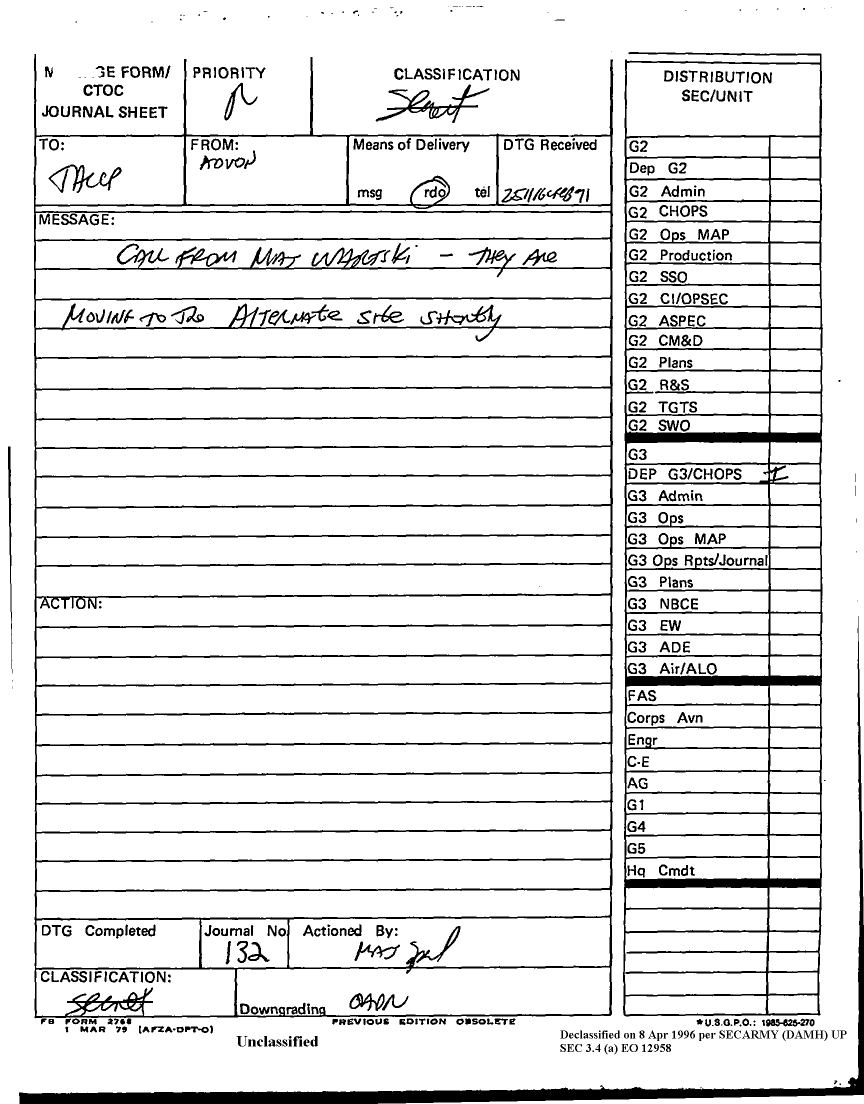 GE FORM/
CTOC
JOURNAL SHEET
PRIORITY
R
CLASSIFICATION
Secret
TO:
TACCP
FROM:
ADVON
Means of Delivery
msg rdo tel
DTG Received
MESSAGE:
CALL FROM MAJ - THEY ARE
MOVING TO ALTERNATE SITE SHORTLY
ACTION:
DTG Completed
Journal No
132
Actioned By:
MAJ
CLASSIFICATION:
Secret
Downgrading OADR
FB FORM 2768
1 MAR 79 (AFZA-DPT-O)
PREVIOUS EDITION OBSOLETE
DISTRIBUTION
SEC/UNIT
G2
Dep G2
G2 Admin
G2 CHOPS
G2 Ops MAP
G2 Production
G2 SSO
G2 CI/OPSEC
G2 ASPEC
G2 CM&D
G2 Plans
G2 R&S
G2 TGTS
G2 SWO
G3
DEP G3/CHOPS I
G3 Admin
G3 Ops
G3 Ops MAP
G3 Ops Rpts/Journal
G3 Plans
G3 NBCE
G3 EW
G3 ADE
G3 Air/ALO
FAS
Corps Avn
Engr
C-E
AG
G1
G4
G5
Hq Cmdt
*U.S.G.P.O.: 1985-625-270
Unclassified
Declassified on 8 Apr 1996 per SECARMY (DAMH) UP
SEC 3.4 (a) EO 12958